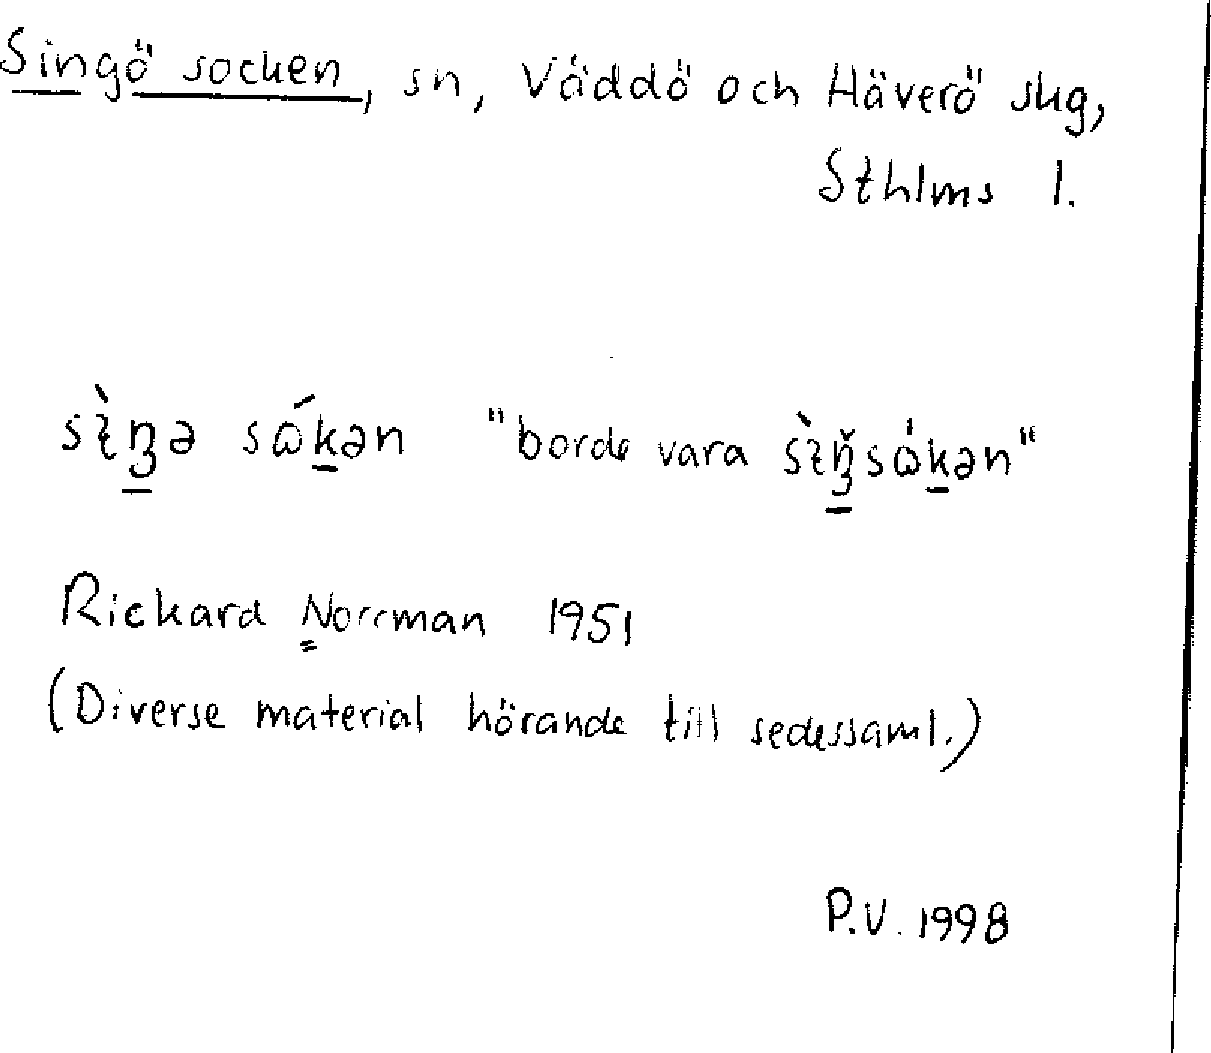 Singö socken, sn, Väddö och Häverö skg,
Sthlms l.
sìŋə sɷ́kən "borde vara sìŋ̌sɷ́kən"
Rickard Norrman 1951
(Diverse material hörande till sedessaml.)
P.V. 1998